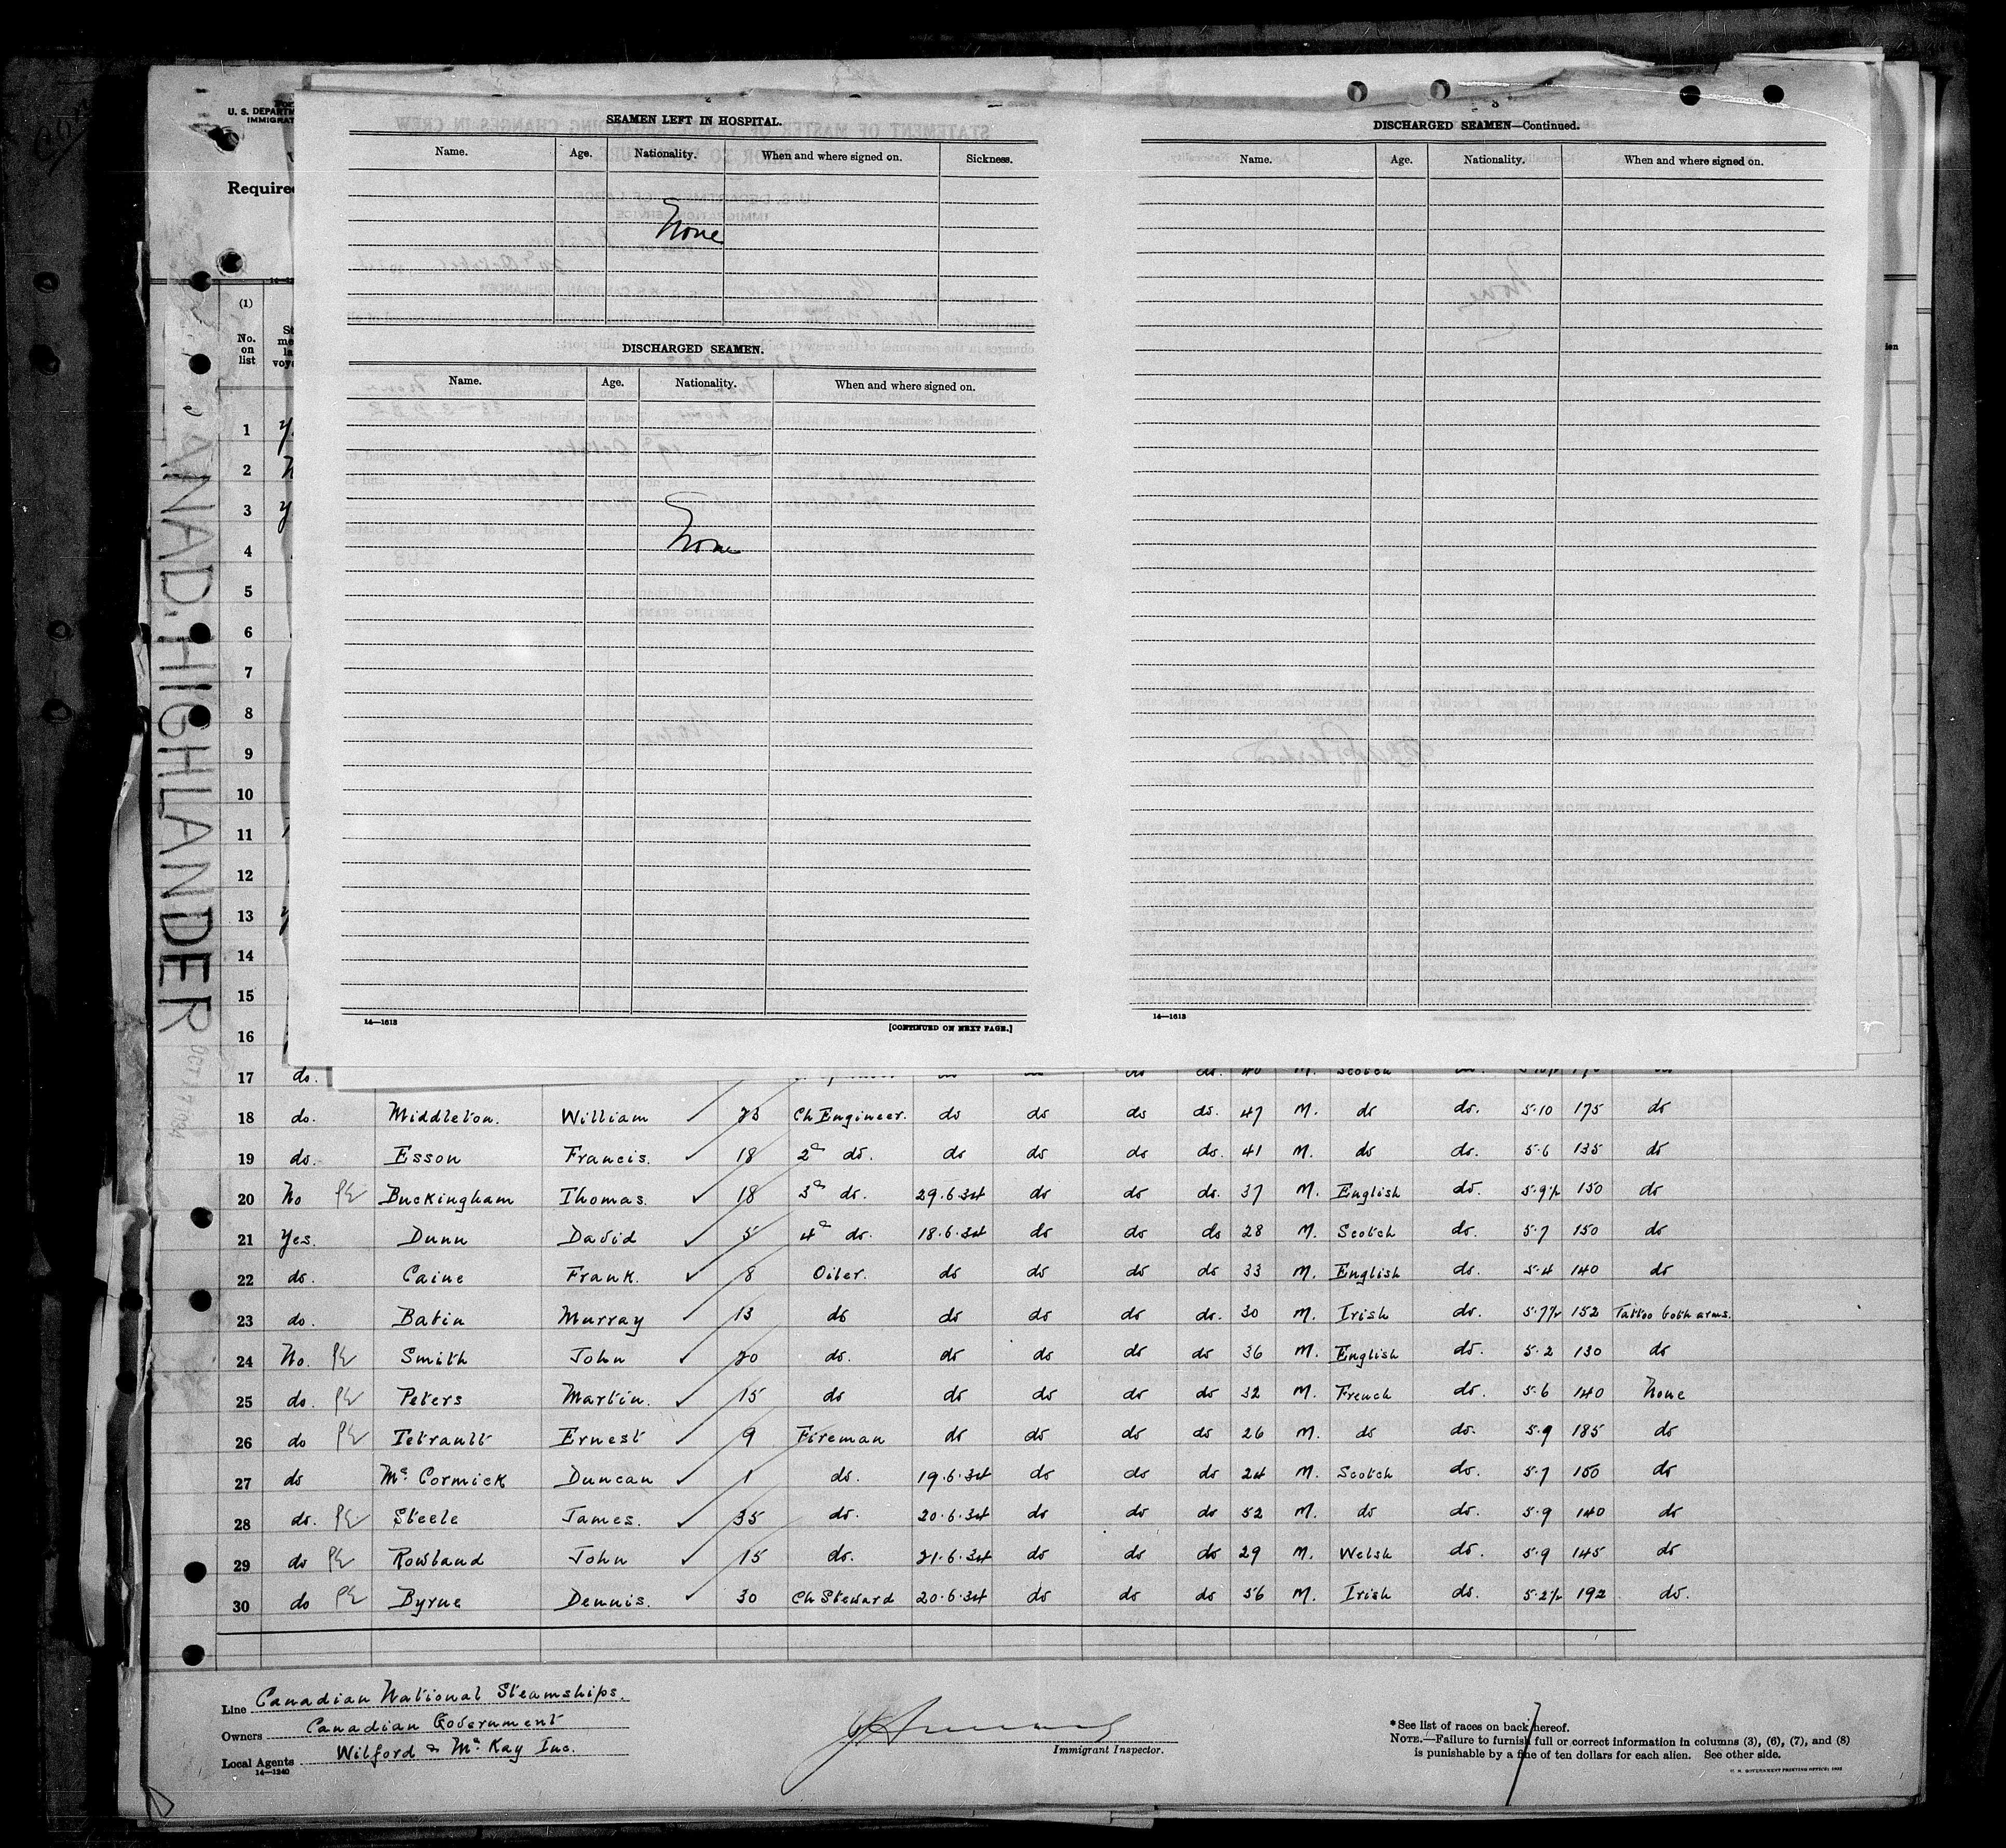 Copy
U. S. DEPARTM
IMMIGRAT
Required
CANAD. HIGHLANDER
SEAMEN LEFT IN HOSPITAL.
Name. Age. Nationality. When and where signed on. Sickness.
None
DISCHARGED SEAMEN.
Name. Age. Nationality. When and where signed on.
None
14—1613 [CONTINUED ON NEXT PAGE.]
DISCHARGED SEAMEN—Continued.
Name. Age. Nationality. When and where signed on.
14—1613
(1)
No. on list
1
2
3
4
5
6
7
8
9
10
11
12
13
14
15
16
17 do.
18 do. Middleton. William ✓ 23 Ch Engineer. do do do do. 47 M. do do. 5·10 175 do
19 do. Esson Francis. ✓ 18 2d do. do do do do. 41 M. do do. 5·6 135 do
20 No PE Buckingham Thomas. ✓ 18 3d do. 29·6·34 do do do. 37 M. English do. 5·9½ 150 do
21 Yes. Dunn David ✓ 5 4th do. 18·6·34 do do do 28 M. Scotch do. 5·7 150 do
22 do. Caine Frank. ✓ 8 Oiler. do do do do 33 M. English do. 5·4 140 do
23 do. Batin Murray ✓ 13 do do do do do. 30 M. Irish do. 5·7½ 152 Tattoo both arms.
24 No. PE Smith John ✓ 20 do. do do do do 36 M. English do. 5·2 130 do
25 do. PE Peters Martin. ✓ 15 do do do do do 32 M. French do. 5·6 140 None
26 do PE Tetrault Ernest ✓ 9 Fireman do do do do 26 M. do do. 5·9 185 do
27 do Mc Cormick Duncan ✓ 1 do. 19·6·34 do do do 24 M. Scotch do. 5·7 150 do
28 do. PE Steele James. ✓ 35 do. 20·6·34 do do do 52 M. do do. 5·9 140 do
29 do PE Rowland John ✓ 15 do. 21·6·34 do do do 29 M. Welsh do. 5·9 145 do
30 do PE Byrne Dennis. ✓ 30 Ch Steward 20·6·34 do do do 56 M. Irish do. 5·2½ 192 do.
Line Canadian National Steamships.
Owners Canadian Government
Local Agents Wilford & Mc Kay Inc.
14—1240
Immigrant Inspector.
*See list of races on back hereof.
NOTE.—Failure to furnish full or correct information in columns (3), (6), (7), and (8)
is punishable by a fine of ten dollars for each alien. See other side.
U. S. GOVERNMENT PRINTING OFFICE: 1932